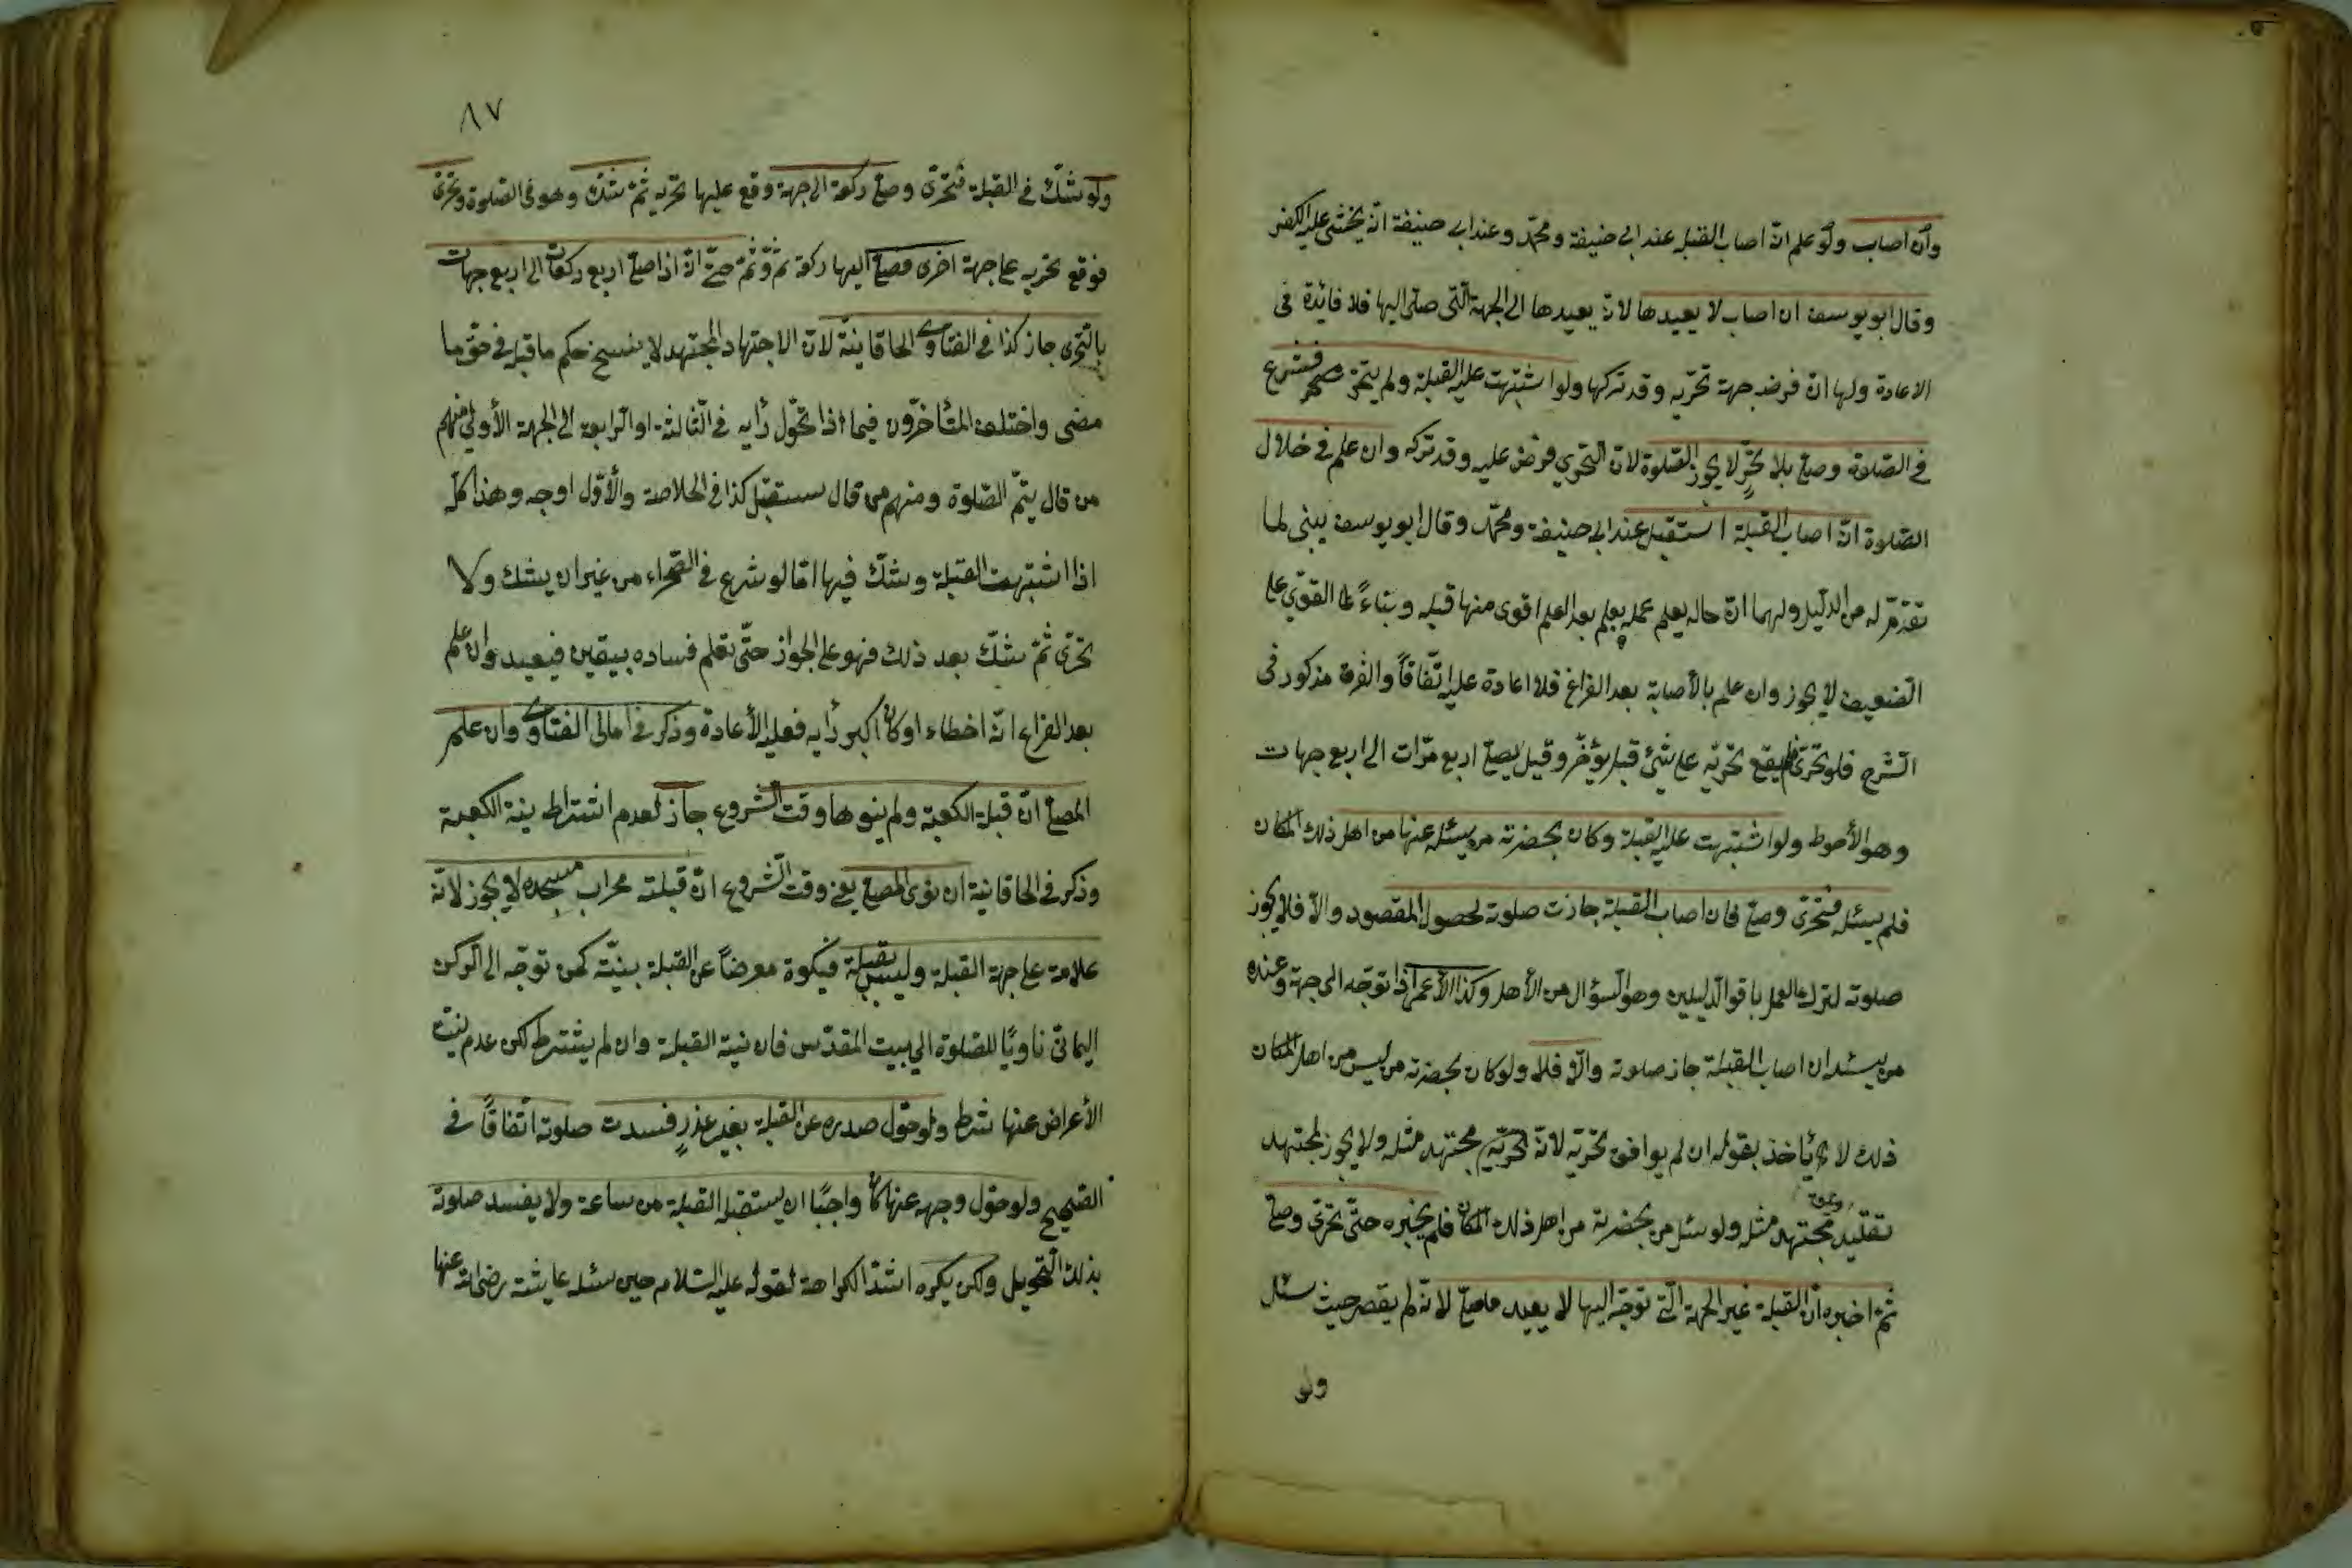 وان اصاب ولو علم انّه اصاب القبلة عند ابي حنيفة ومحمّد وعند ابي حنيفة انّه يخشى عليه الكفر
وقال ابو يوسف ان اصاب لا يعيدها لانّه يعيدها الى الجهة الّتى صلّى اليها فلا فائدة فى
الاعادة ولها انّ فرضه جهة تحرّيه وقد تركها ولو اشتبهت عليه القبلة ولم يتحرّ فشرع
في الصّلوة وصلّى بلا تحرٍّ لا يجوز الصّلوة لانّ التحرّي فرض عليه وقد تركه وان علم في خلال
الصّلوة انّه اصاب القبلة استقبل عند ابي حنيفة ومحمّد وقال ابو يوسف يبنى لما
تقدّم له من الدّليل ولهما انّ حاله بعد العلم اقوى منها قبله وبناءً القوّي على
الضّعيف لا يجوز وان علم بالأصابة بعد الفراغ فلا اعادة عليه اتّفاقاً والفرق مذكور فى
الشّرح فلو تحرّى فلم يقع تحرّيه على شئ قيل يؤخّر وقيل يصلّى اربع مرّات الى اربع جهات
وهو الأحوط ولو اشتبهت عليه القبلة وكان بحضرته من يسئله عنها من اهل ذلك المكان
فلم يسئله فتحرّى وصلّى فان اصاب القبلة جازت صلوته لحصول المقصود والاّ فلا يجوز
صلوته لترك العمل باقوى الدّليلين وهو السّؤال من الأهل وكذا الأعمى اذا توجّه الى جهة وعنده
من يسئله ان اصاب القبلة جاز صلوته والّا فلا ولو كان بحضرته من ليس من اهل المكان
ذلك لا يأخذ بقوله ان لم يوافق تحرّيه لانّه مجتهد مثله ولا يجوز لمجتهد
تقليد مجتهد مثله ولو سئل من بحضرته من اهل ذلك المكان فلم يخبره حتّى تحرّى وصلّى
ثمّ اخبره انّ القبلة غير الجهة الّتي توجّه اليها لا يعيد ما صلّى لانّه لم يقصر حيث سئل
ولو
٨٧
ولو شكّ في القبلة فتحرّى وصلّى ركعة الى جهة وقع عليها تحريه ثمّ شكّ وهو فى الصّلوة وتحرّى
فوقع تحريه على جهة اخرى فصلّى اليها ركعة ثمّ وثمّ حتّى انّه اذا صلّى اربع ركعات الى اربع جهات
بالتّحرى جاز كذا في الفتاوى الخاقانيّة لانّ الاجتهاد المجتهد لا ينسخ حكم ما قبله في حقّ ما
مضى واختلف المتأخّرون فيما اذا تحوّل رأيه فى الثّالثة او الرّابعة الى الجهة الأولى منهم
من قال يتمّ الصّلوة ومنهم من قال يستقبل كذا فى الخلاصة والأوّل اوجه وهذا كلّه
اذا اشتبهت القبلة وشكّ فيها امّا لو شرع في الصّحراء من غير ان يشك ولا
تحرّى ثمّ شكّ بعد ذلك فهو على الجواز حتّى تعلم فساده بيقين فيعيد وان علم
بعد الفراغ انّه اخطاء او كان اكبر رأيه فعليه الأعادة وذكر فى امالى الفتاوى وان علم
المصلّى انّ قبلة الكعبة ولم ينوها وقت الشروع جاز لعدم اشتراط نية الكعبة
وذكر في الخاقانية ان نوى المصلّى يعنى وقت الشروع انّ قبلته محراب مسجده لا يجوز لانّه
علامة على جهة القبلة وليس بقبلة فيكون معرضاً عن القبلة بنيّته كمن توجّه الى الركن
اليمانّي ناويًا للصّلوة الى بيت المقدّس فان نية القبلة وان لم يشترط لكن عدم نيت
الأعراض عنها شرط ولو حوّل صدره عن القبلة بغير عذرٍ فسدت صلوته اتّفاقاً في
الصّحيح ولو حوّل وجهه عنها كان واجبًا ان يستقبل القبلة من ساعة ولا يفسد صلوته
بذلك التّحويل ولكن يكره اشدّ الكراهة لقوله عليه السّلام حين سئله عايشة رضى الله عنها